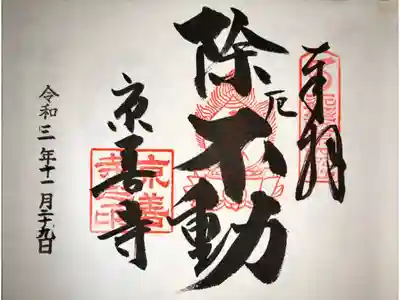 奉拝
除厄不動
京善寺
令和三年十一月二十九日
京善寺之印